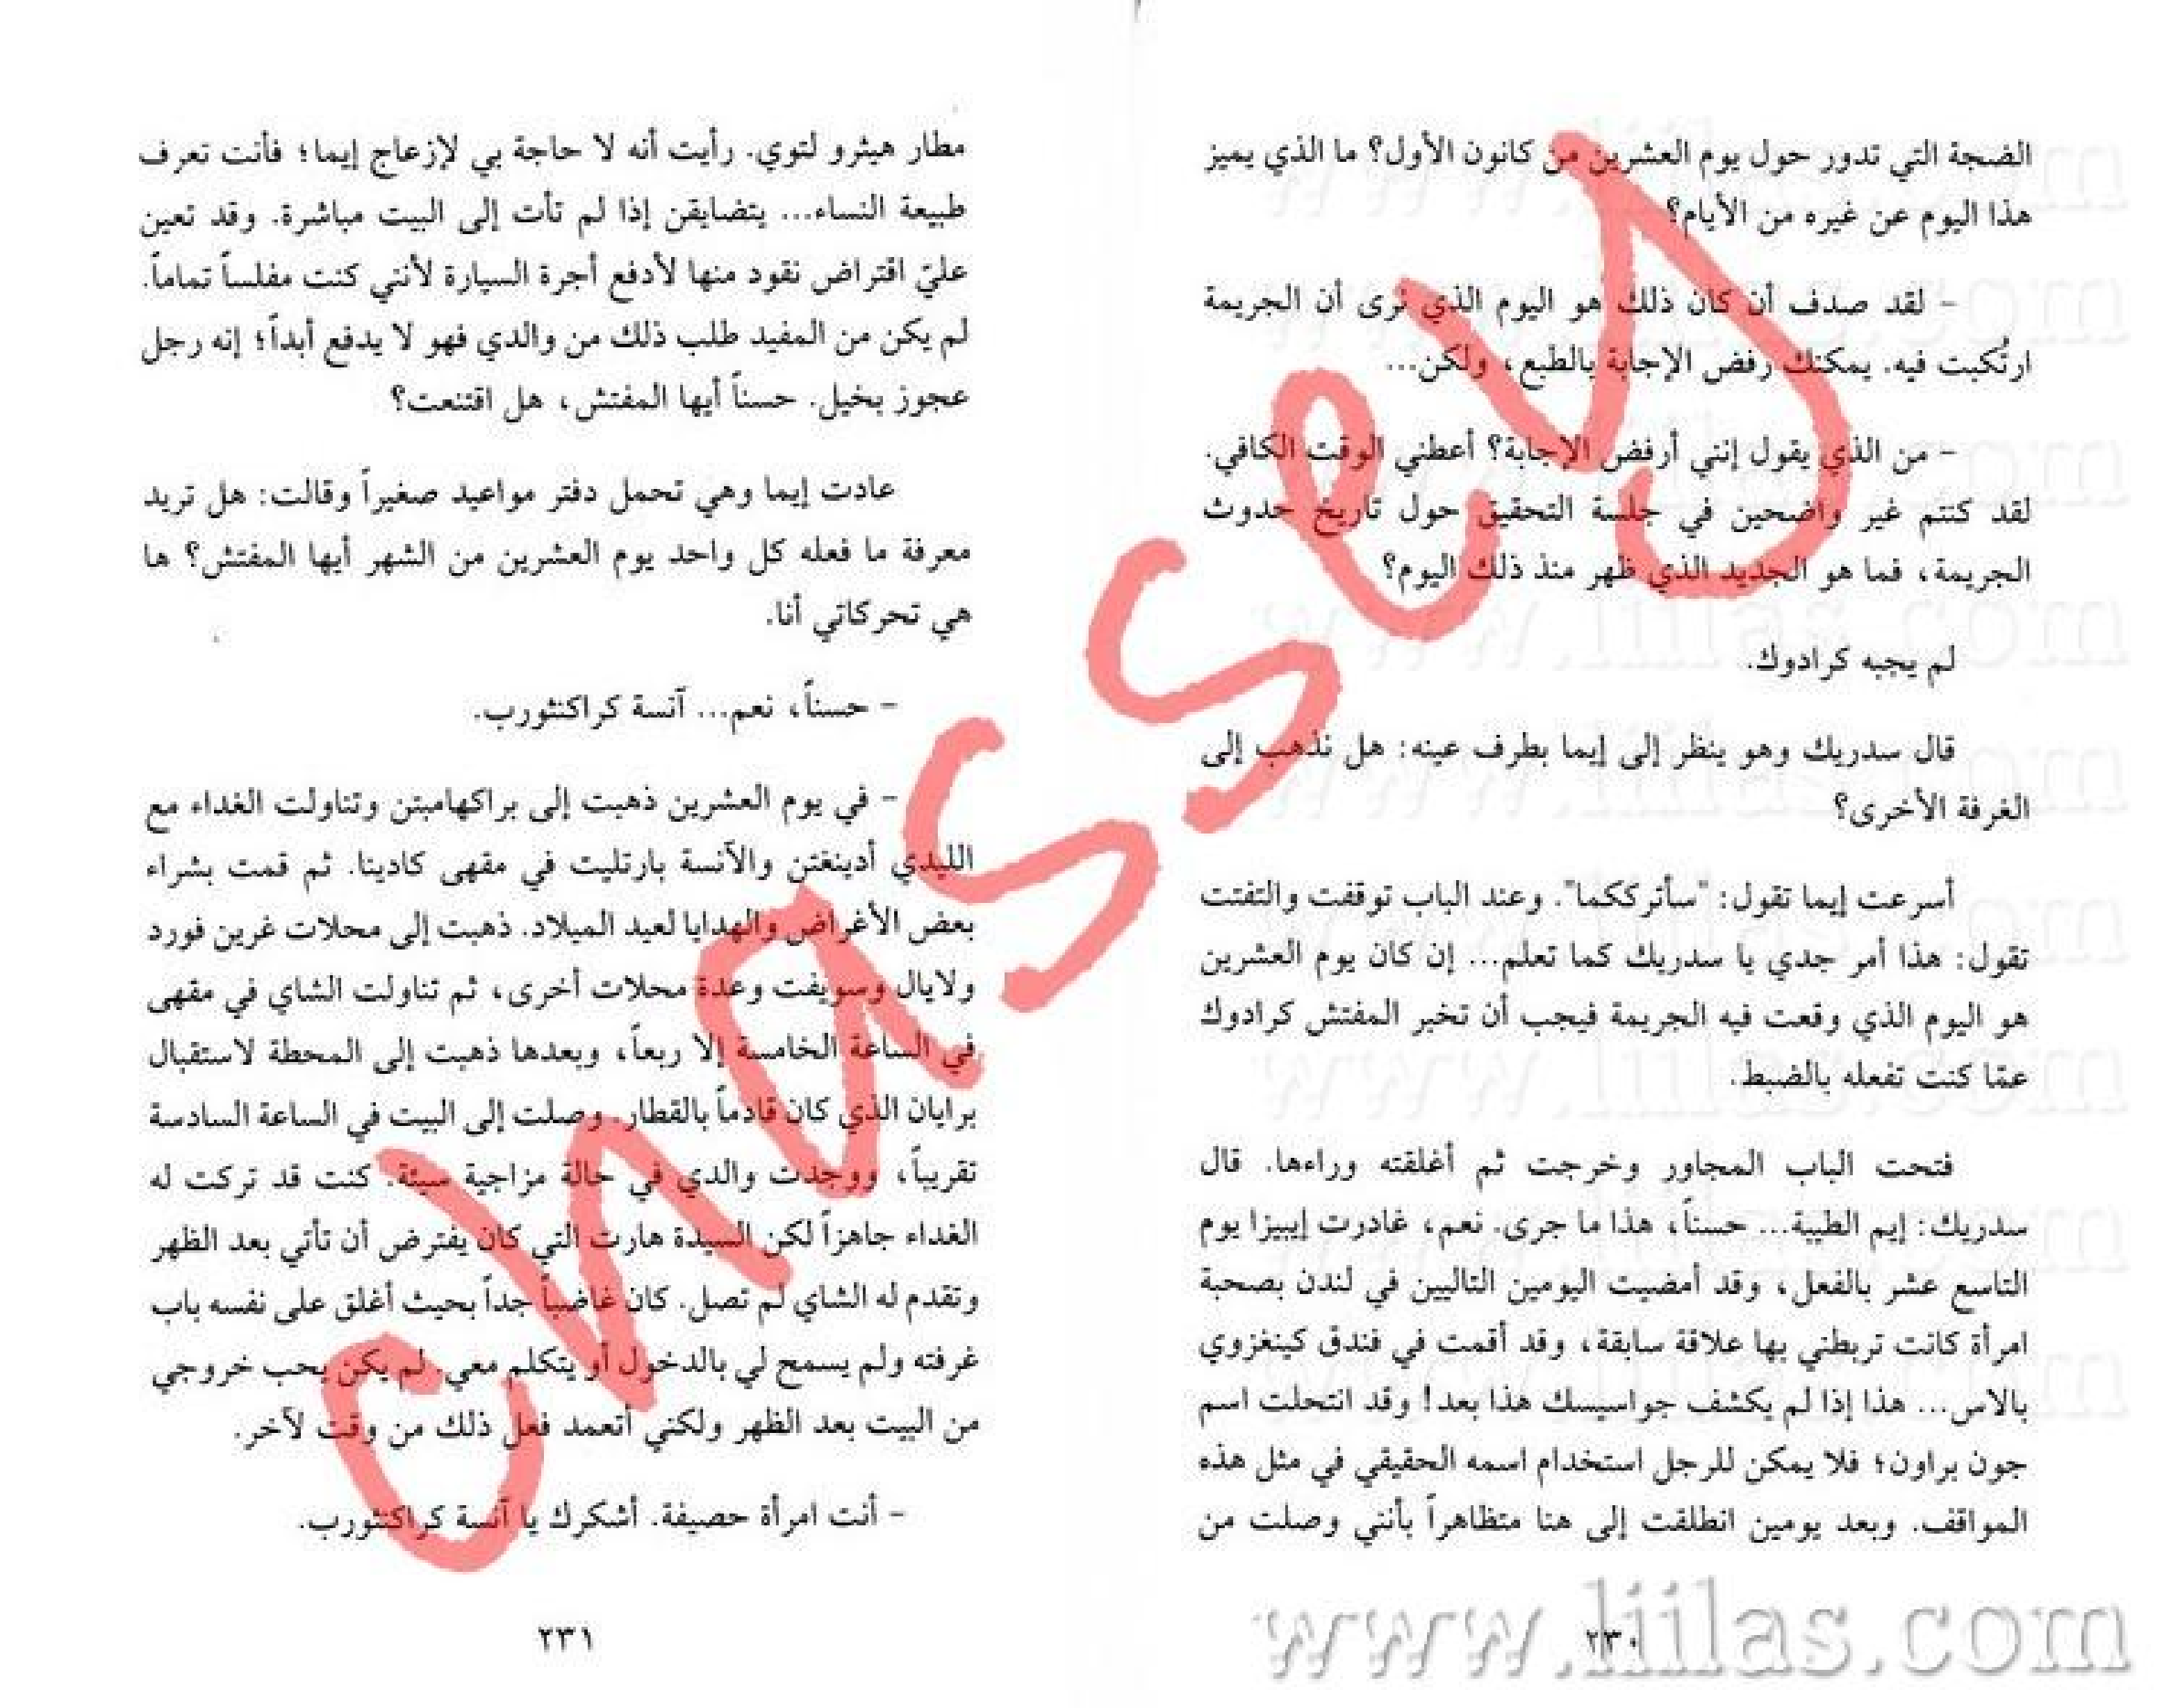 الضجة التي تدور حول يوم العشرين من كانون الأول؟ ما الذي يميز
هذا اليوم عن غيره من الأيام؟
- لقد صدف أن كان ذلك هو اليوم الذي نرى أن الجريمة
ارتُكبت فيه. يمكنك رفض الإجابة بالطبع، ولكن...
- من الذي يقول إنني أرفض الإجابة؟ أعطني الوقت الكافي.
لقد كنتم غير واضحين في جلسة التحقيق حول تاريخ حدوث
الجريمة، فما هو الجديد الذي ظهر منذ ذلك اليوم؟
لم يجبه كرادوك.
قال سدريك وهو ينظر إلى إيما بطرف عينه: هل نذهب إلى
الغرفة الأخرى؟
أسرعت إيما تقول: "سأترككما". وعند الباب توقفت والتفتت
تقول: هذا أمر جدي يا سدريك كما تعلم... إن كان يوم العشرين
هو اليوم الذي وقعت فيه الجريمة فيجب أن تخبر المفتش كرادوك
عمّا كنت تفعله بالضبط.
فتحت الباب المجاور وخرجت ثم أغلقته وراءها. قال
سدريك: إيم الطيبة... حسناً، هذا ما جرى. نعم، غادرت إيبيزا يوم
التاسع عشر بالفعل، وقد أمضيت اليومين التاليين في لندن بصحبة
امرأة كانت تربطني بها علاقة سابقة، وقد أقمت في فندق كينغزوي
بالاس... هذا إذا لم يكشف جواسيسك هذا بعد! وقد انتحلت اسم
جون براون؛ فلا يمكن للرجل استخدام اسمه الحقيقي في مثل هذه
المواقف. وبعد يومين انطلقت إلى هنا متظاهراً بأنني وصلت من
٢٣٠
مطار هيثرو لتوي. رأيت أنه لا حاجة بي لإزعاج إيما؛ فأنت تعرف
طبيعة النساء... يتضايقن إذا لم تأت إلى البيت مباشرة. وقد تعين
عليّ اقتراض نقود منها لأدفع أجرة السيارة لأنني كنت مفلساً تماماً.
لم يكن من المفيد طلب ذلك من والدي فهو لا يدفع أبداً؛ إنه رجل
عجوز بخيل. حسناً أيها المفتش، هل اقتنعت؟
عادت إيما وهي تحمل دفتر مواعيد صغيراً وقالت: هل تريد
معرفة ما فعله كل واحد يوم العشرين من الشهر أيها المفتش؟ ها
هي تحركاتي أنا.
- حسناً، نعم... آنسة كراكنثورب.
- في يوم العشرين ذهبت إلى براكهامبتن وتناولت الغداء مع
الليدي أدينغتن والآنسة بارتليت في مقهى كادينا. ثم قمت بشراء
بعض الأغراض والهدايا لعيد الميلاد. ذهبت إلى محلات غرين فورد
ولايال وسويفت وعدة محلات أخرى، ثم تناولت الشاي في مقهى
في الساعة الخامسة إلا ربعاً، وبعدها ذهبت إلى المحطة لاستقبال
برايان الذي كان قادماً بالقطار. وصلت إلى البيت في الساعة السادسة
تقريباً، ووجدت والدي في حالة مزاجية سيئة. كنت قد تركت له
الغداء جاهزاً لكن السيدة هارت التي كان يفترض أن تأتي بعد الظهر
وتقدم له الشاي لم تصل. كان غاضباً جداً بحيث أغلق على نفسه باب
غرفته ولم يسمح لي بالدخول أو يتكلم معي. لم يكن يحب خروجي
من البيت بعد الظهر ولكني أتعمد فعل ذلك من وقت لآخر.
- أنت امرأة حصيفة. أشكرك يا آنسة كراكنثورب.
٢٣١
www.liilas.com